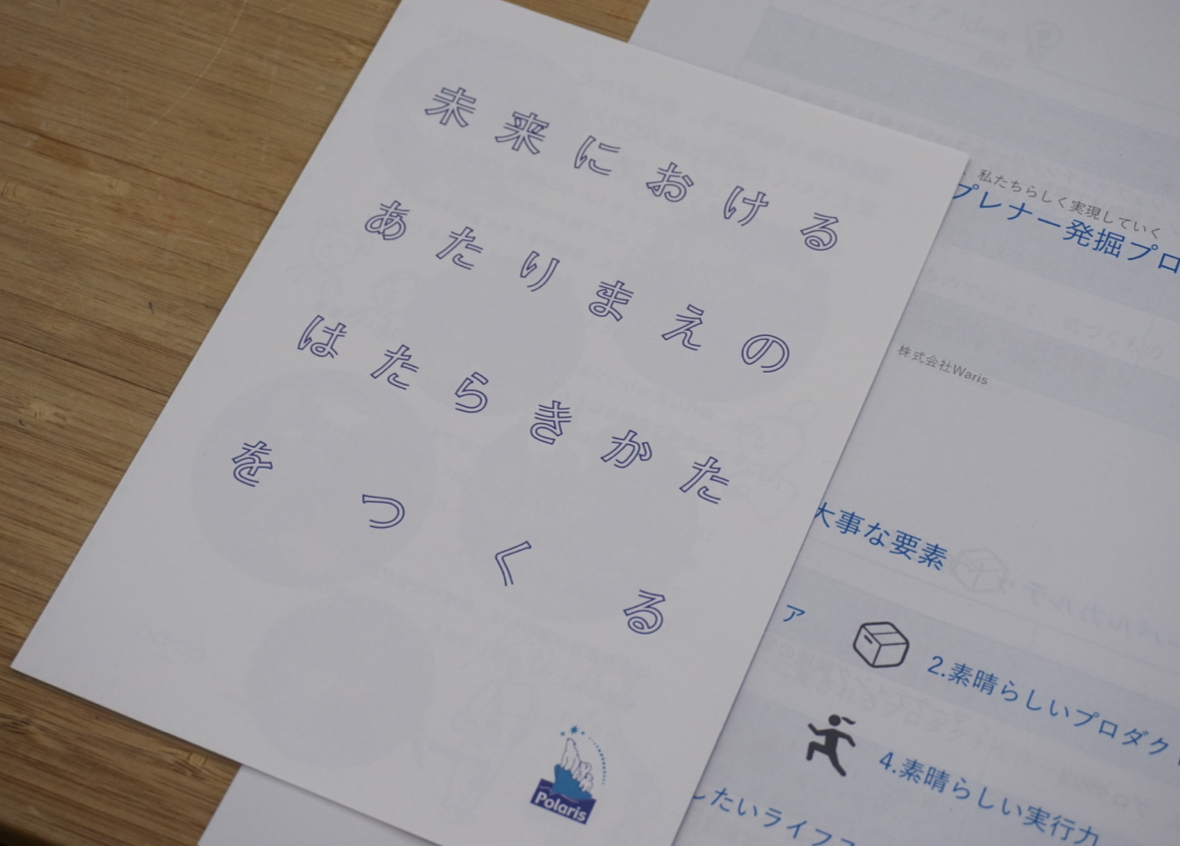 未来における
あたりまえの
はたらきかた
をつくる
Polaris
私たちらしく実現していく
プレナー発掘プロ
株式会社Waris
大事な要素
ア
2.素晴らしいプロダク
4.素晴らしい実行力
したいライフス